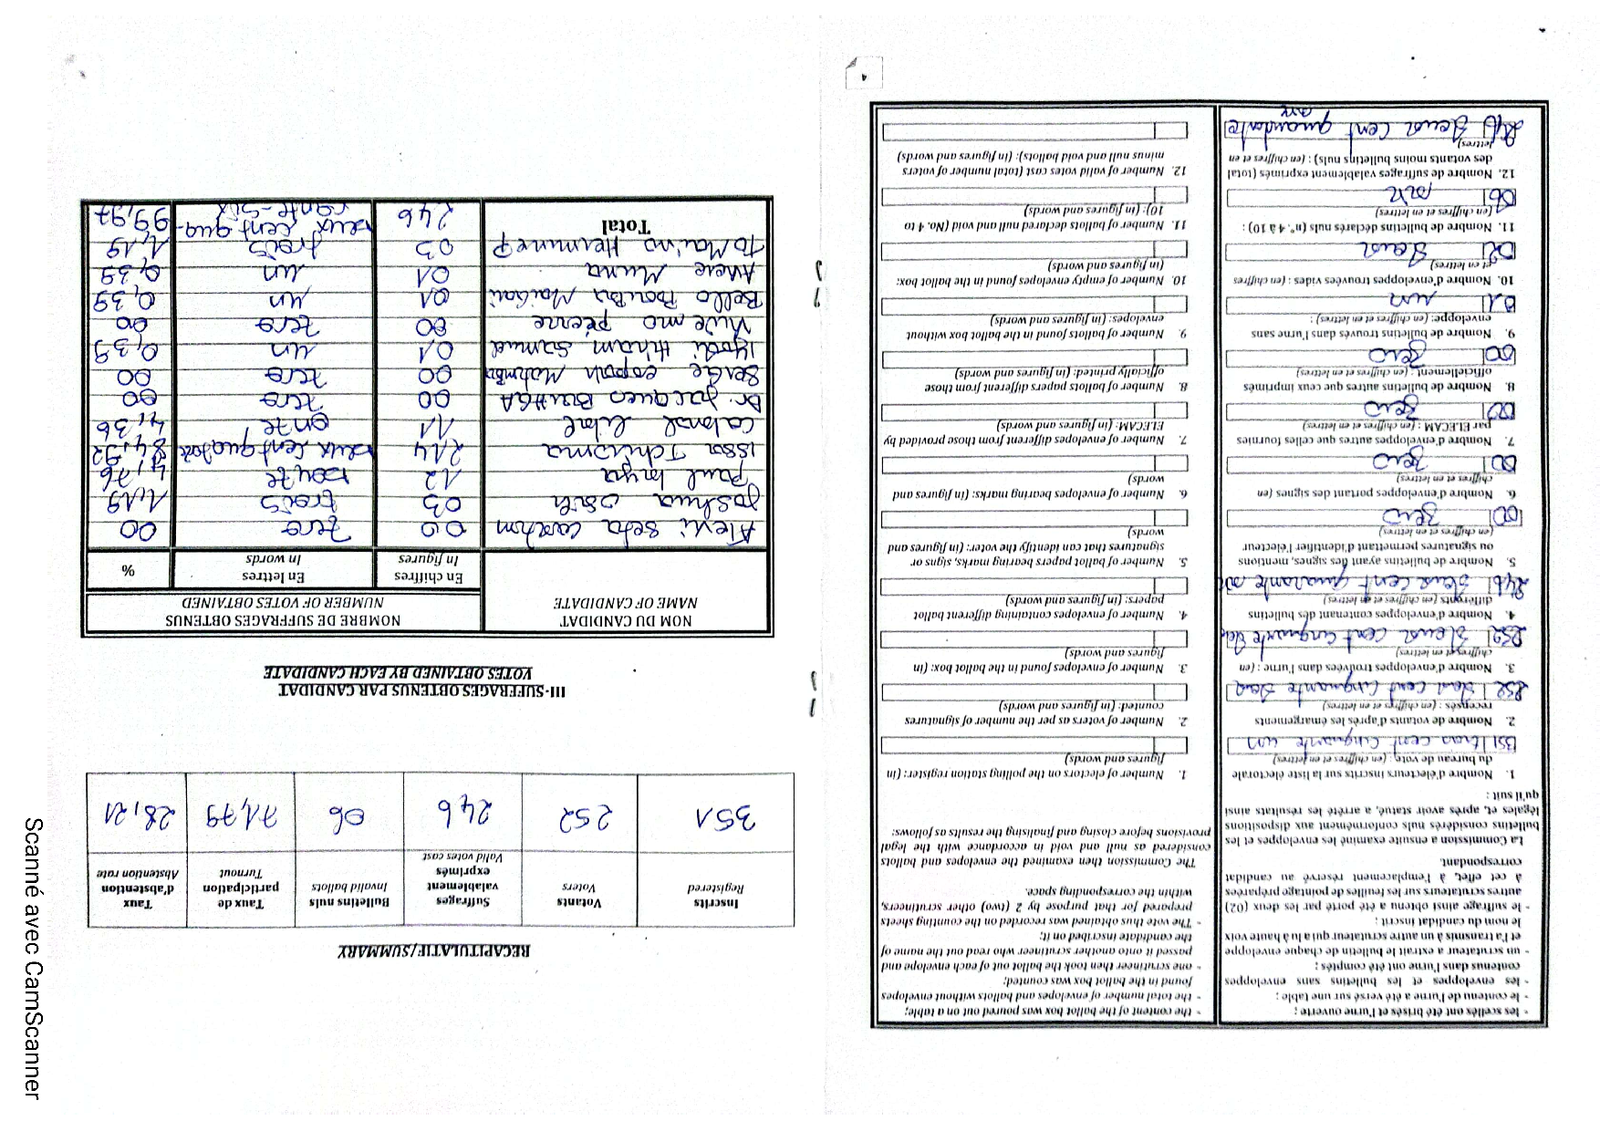 4
- les scellés ont été brisés et l'urne ouverte ;
- le contenu de l'urne a été versé sur une table ;
- les enveloppes et les bulletins sans enveloppes
contenus dans l'urne ont été comptés ;
- un scrutateur a extrait le bulletin de chaque enveloppe
et l'a transmis à un autre scrutateur qui a lu à haute voix
le nom du candidat inscrit ;
- le suffrage ainsi obtenu a été porté par les deux (02)
autres scrutateurs sur les feuilles de pointage préparées
à cet effet, à l'emplacement réservé au candidat
correspondant.
La Commission a ensuite examiné les enveloppes et les
bulletins considérés nuls conformément aux dispositions
légales et, après avoir statué, a arrêté les résultats ainsi
qu'il suit :
1. Nombre d'électeurs inscrits sur la liste électorale
du bureau de vote : (en chiffres et en lettres)
351 trois cent cinquante un
2. Nombre de votants d'après les émargements
recensés : (en chiffres et en lettres)
252 deux cent cinquante deux
3. Nombre d'enveloppes trouvées dans l'urne : (en
chiffres et en lettres)
252 deux cent cinquante deux
4. Nombre d'enveloppes contenant des bulletins
différents (en chiffres et en lettres)
246 deux cent quarante six
5. Nombre de bulletins ayant des signes, mentions
ou signatures permettant d'identifier l'électeur
(en chiffres et en lettres)
00 zero
6. Nombre d'enveloppes portant des signes (en
chiffres et en lettres)
00 zero
7. Nombre d'enveloppes autres que celles fournies
par ELECAM : (en chiffres et en lettres)
00 zero
8. Nombre de bulletins autres que ceux imprimés
officiellement : (en chiffres et en lettres)
00 zero
9. Nombre de bulletins trouvés dans l'urne sans
enveloppe: (en chiffres et en lettres) :
01 un
10. Nombre d'enveloppes trouvées vides : (en chiffres
et en lettres)
02 deux
11. Nombre de bulletins déclarés nuls (n°. 4 à 10) :
(en chiffres et en lettres)
06 six
12. Nombre de suffrages valablement exprimés (total
des votants moins bulletins nuls) : (en chiffres et en
lettres)
246 deux cent quarante
six
- the content of the ballot box was poured out on a table;
- the total number of envelopes and ballots without envelopes
found in the ballot box was counted:
- one scrutineer then took the ballot out of each envelope and
passed it onto another scrutineer who read out the name of
the candidate inscribed on it;
- The vote thus obtained was recorded on the counting sheets
prepared for that purpose by 2 (two) other scrutineers,
within the corresponding space.
The Commission then examined the envelopes and ballots
considered as null and void in accordance with the legal
provisions before closing and finalising the results as follows:
1. Number of electors on the polling station register: (in
figures and words)
2. Number of voters as per the number of signatures
counted: (in figures and words)
3. Number of envelopes found in the ballot box: (in
figures and words)
4. Number of envelopes containing different ballot
papers: (in figures and words)
5. Number of ballot papers bearing marks, signs or
signatures that can identify the voter: (in figures and
words
6. Number of envelopes bearing marks: (in figures and
words)
7. Number of envelopes different from those provided by
ELECAM: (in figures and words)
8. Number of ballots papers different from those
officially printed: (in figures and words)
9. Number of ballots found in the ballot box without
envelopes: (in figures and words)
10. Number of empty envelopes found in the ballot box:
(in figures and words)
11. Number of ballots declared null and void (No. 4 to
10): (in figures and words)
12. Number of valid votes cast (total number of voters
minus null and void ballots): (in figures and words)
RECAPITULATIF/SUMMARY
Inscrits Registered Votants Voters Suffrages valablement exprimés Valid votes cast Bulletins nuls Invalid ballots Taux de participation Turnout Taux d'abstention Abstention rate
351 252 246 06 71,79 28,21
III-SUFFRAGES OBTENUS PAR CANDIDAT
VOTES OBTAINED BY EACH CANDIDATE
NOM DU CANDIDAT NOMBRE DE SUFFRAGES OBTENUS
NAME OF CANDIDATE NUMBER OF VOTES OBTAINED
En chiffres En lettres %
In figures In words
Ateki Seta Caxton 00 zero 00
Joshua Osih 03 trois 1,19
Paul Biya 12 douze 4,76
Issa Tchiroma 214 deux cent quatorze 84,92
Cabral Libii 11 onze 4,36
Dr. Jacques BOUHGA 00 zero 00
Serge espoir Matomba 00 zero 00
Iyodi Hiram Samuel 01 un 0,39
Kwemo Pierre 00 zero 00
Bello Bouba Maïgari 01 un 0,39
Akere Muna 01 un 0,39
Tomaïno Hermine P 03 trois 1,19
Total 246 deux cent qua-
rante-six 99,97
Scanné avec CamScanner